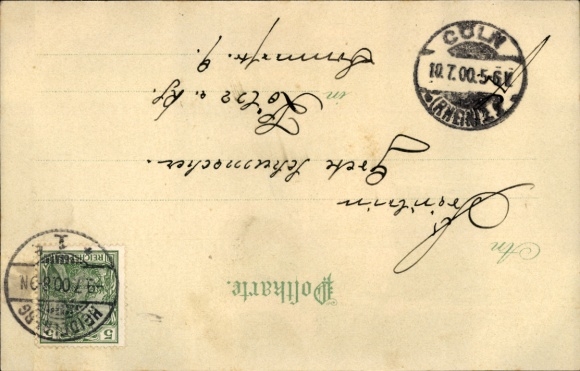 Postkarte.
An
Fräulein
Grete Schumacher.
in
Köln a. Rh.
9.
REICHSPOST
5
HEIDELBERG
9.7.00
1
CÖLN
10.7.00.5-6V.
(RHEIN) 1